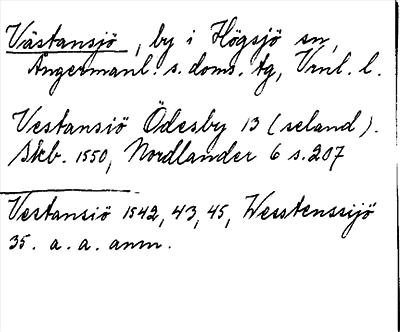 Västansjö, by i Högsjö sn,
Ångermanl. s. doms. tg, Vnl. l.
Vestansiö Ödesby 13 (seland).
Skb. 1550, Nordlander 6 s. 207
Vestansiö 1542, 43, 45, Wesstenssijö
35. a. a. anm.